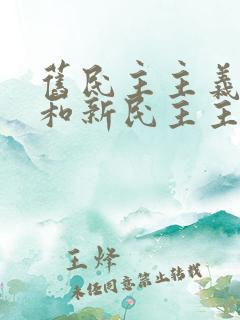 舊民主主義
和新民主主
王烽
未经同意禁止转载